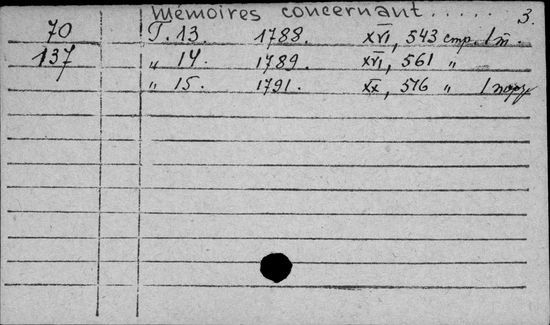 Mémoires concernant...... 3.
70 T. 13. 1788. XVI, 543 стр. 1 т.
137 „ 14. 1789. XVI, 561 „
„ 15. 1791. XX, 516 „ 1 порт.